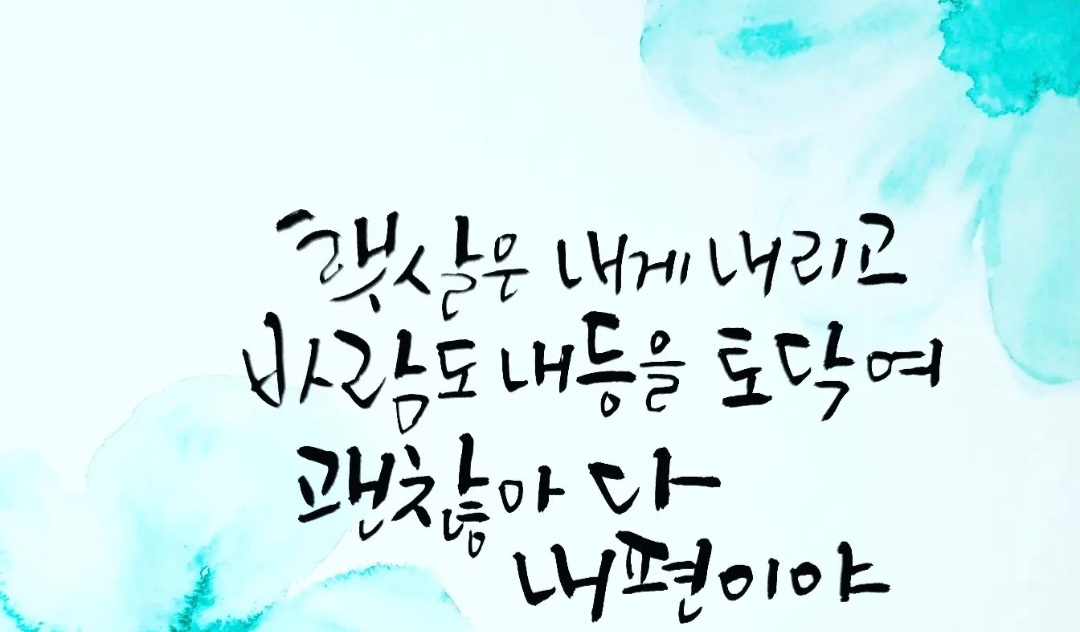 햇살은 내게 내리고
바람도 내 등을 토닥여
괜찮아 다
내 편이야